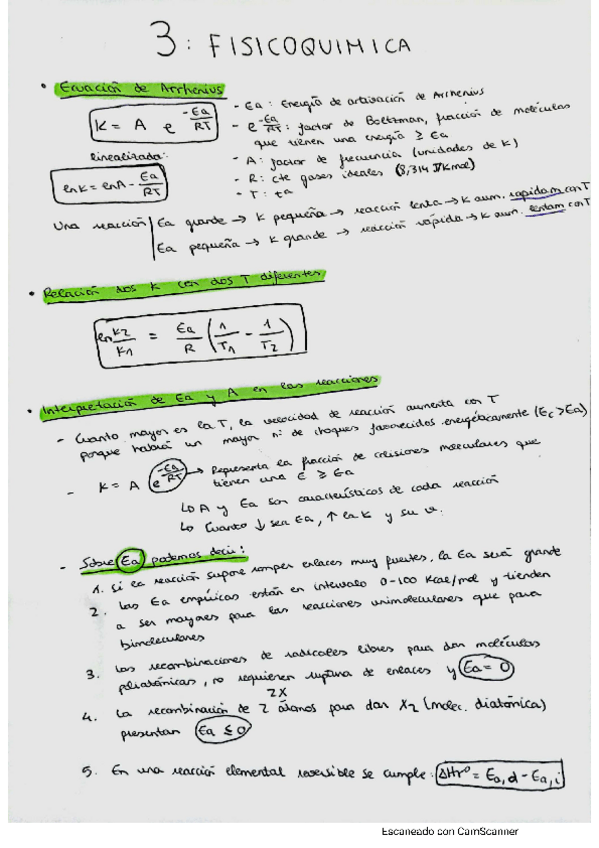 3: FISICOQUIMICA
• Ecuación de Arrhenius
K = A e^(-Ea/RT)
linealizada:
lnK = lnA - Ea/RT
- Ea: Energía de activación de Arrhenius
- e^(-Ea/RT): factor de Boltzman, fracción de moléculas
que tienen una energía ≥ Ea
- A: factor de frecuencia (unidades de K)
- R: cte gases ideales (8,314 J/Kmol)
- T: tª
Una reacción | Ea grande → K pequeña → reacción lenta → K aum. rapidam con T
Ea pequeña → K grande → reacción rápida → K aum. lentam con T
• Relación dos K con dos T diferentes
ln K2/K1 = Ea/R (1/T1 - 1/T2)
• Interpretación de Ea y A en las reacciones
- Cuanto mayor es la T, la velocidad de reacción aumenta con T
porque habrá un mayor nº de choques favorecidos energéticamente (Ec > Ea)
- K = A e^(-Ea/RT) → Representa la fracción de colisiones moleculares que
tienen una E ≥ Ea
↳ A y Ea son característicos de cada reacción
↳ Cuanto ↓ sea Ea, ↑ la K y su v.
- Sobre Ea podemos decir:
1. Si la reacción supone romper enlaces muy fuertes, la Ea será grande
2. Las Ea empíricas están en intervalo 0-100 Kcal/mol y tienden
a ser mayores para las reacciones unimoleculares que para
bimoleculares
3. Las recombinaciones de radicales libres para dar moléculas
poliatómicas, no requieren ruptura de enlaces y Ea = 0
2X
4. La recombinación de 2 átomos para dar X2 (molec. diatómica)
presentan Ea ≤ 0
5. En una reacción elemental reversible se cumple: ΔHrº = Ea,d - Ea,i
Escaneado con CamScanner